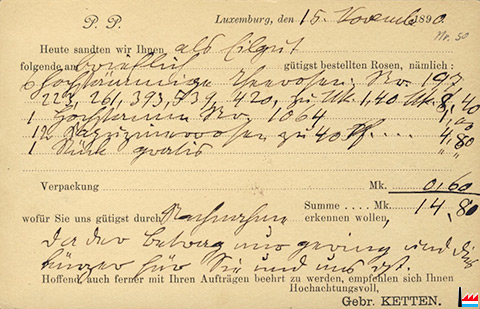 P. P. Luxemburg, den 15. Novemb 1890.
Nr. 50
Heute sandten wir Ihnen als Eilgut
folgende am brieflich gütigst bestellten Rosen, nämlich:
hochstämmige Theerosen: No. 197,
223, 261, 393, 539, 420, zu Mk. 1,40 Mk. 8,40
1 Hochstamm No. 1064 1,00
12 zu 40 Pf.... 4,80
1 Stück gratis " "
Verpackung Mk. 0,60
Summe .... Mk. 14,80
wofür Sie uns gütigst durch Nachnahme erkennen wollen,
da der Betrag nur gering und dies
kürzer für Sie und uns ist.
Hoffend, auch ferner mit Ihren Aufträgen beehrt zu werden, empfehlen sich Ihnen
Hochachtungsvoll,
Gebr. KETTEN.